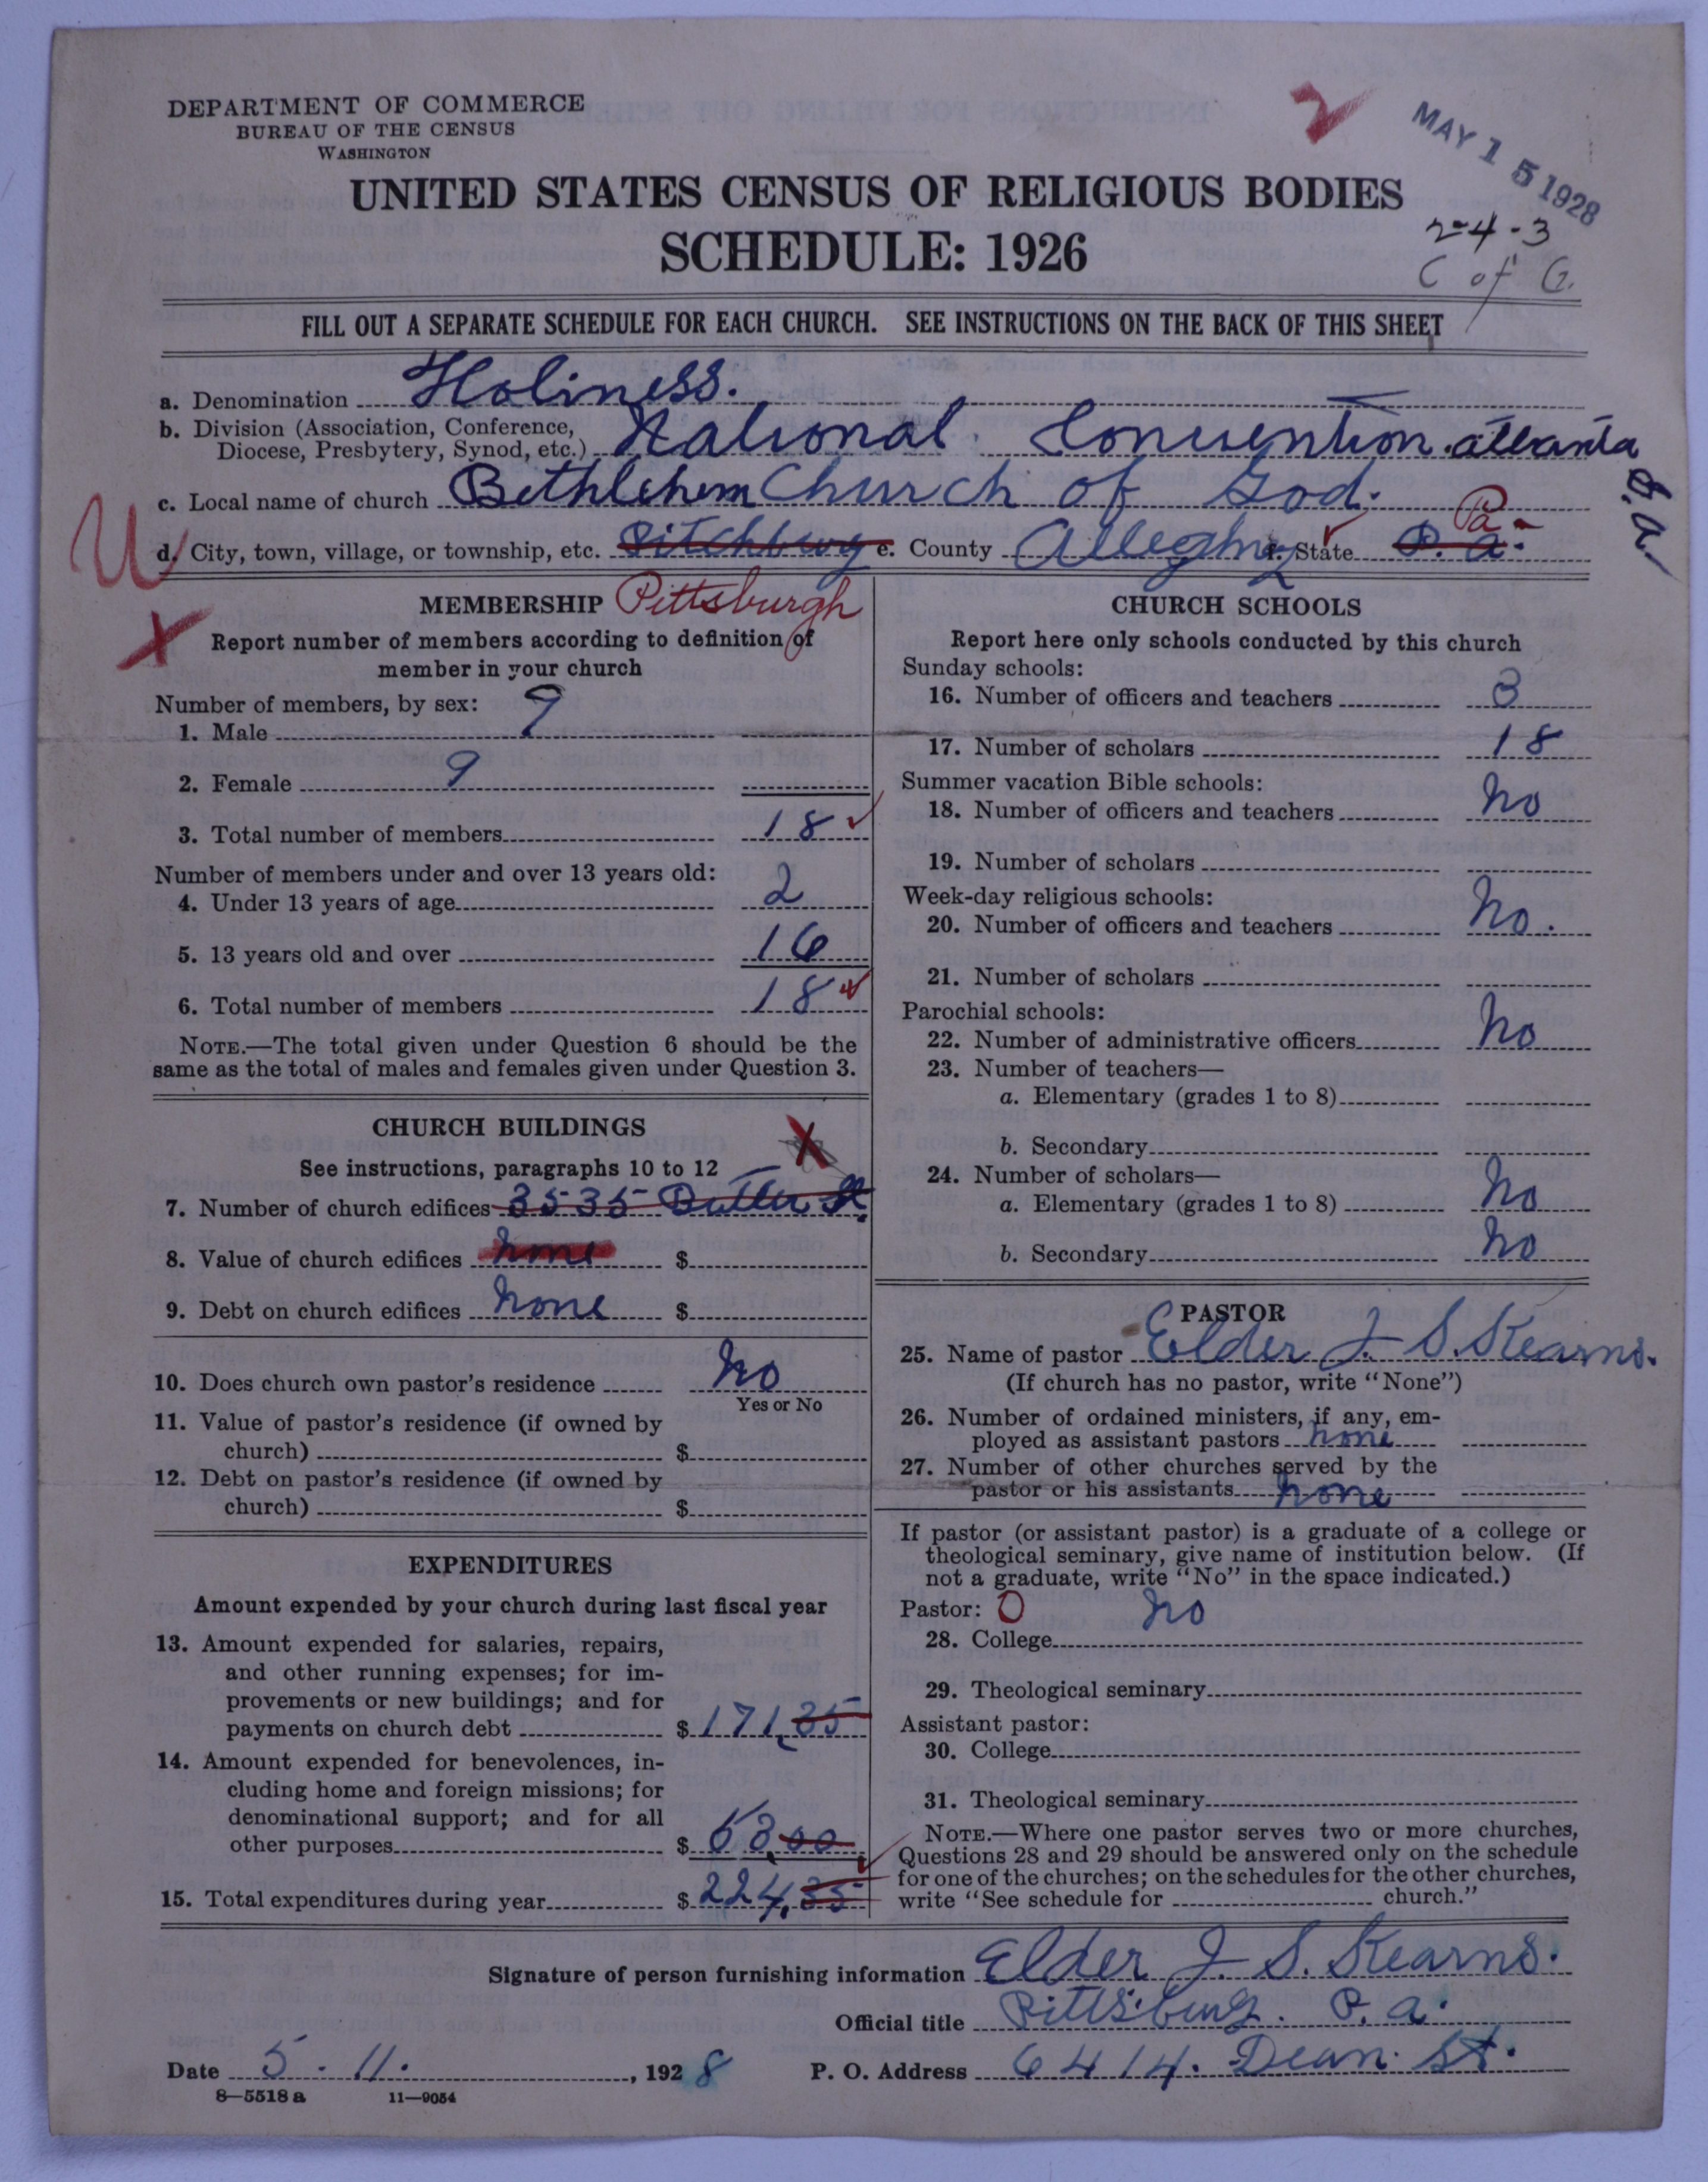 DEPARTMENT OF COMMERCE
BUREAU OF THE CENSUS
WASHINGTON
MAY 15 1928
UNITED STATES CENSUS OF RELIGIOUS BODIES
SCHEDULE: 1926
2-4-3
C of G.
FILL OUT A SEPARATE SCHEDULE FOR EACH CHURCH. SEE INSTRUCTIONS ON THE BACK OF THIS SHEET
a. Denomination Holiness.
b. Division (Association, Conference, Diocese, Presbytery, Synod, etc.) National Convention. atlanta
G.a.
c. Local name of church Bethlehem Church of God.
d. City, town, village, or township, etc. Pitchburg e. County Alleghny f. State P.a. Pa-
W
X
MEMBERSHIP Pittsburgh
Report number of members according to definition of
member in your church
Number of members, by sex:
1. Male 9
2. Female 9
3. Total number of members 18
Number of members under and over 13 years old:
4. Under 13 years of age 2
5. 13 years old and over 16
6. Total number of members 18
NOTE.—The total given under Question 6 should be the
same as the total of males and females given under Question 3.
CHURCH BUILDINGS
X
See instructions, paragraphs 10 to 12
7. Number of church edifices 3535 Butler St.
8. Value of church edifices none $
9. Debt on church edifices none $
10. Does church own pastor's residence no
Yes or No
11. Value of pastor's residence (if owned by
church) $
12. Debt on pastor's residence (if owned by
church) $
EXPENDITURES
Amount expended by your church during last fiscal year
13. Amount expended for salaries, repairs,
and other running expenses; for im-
provements or new buildings; and for
payments on church debt $171.35
14. Amount expended for benevolences, in-
cluding home and foreign missions; for
denominational support; and for all
other purposes $53.00
15. Total expenditures during year $224.35
CHURCH SCHOOLS
Report here only schools conducted by this church
Sunday schools:
16. Number of officers and teachers 3
17. Number of scholars 18
Summer vacation Bible schools:
18. Number of officers and teachers no
19. Number of scholars
Week-day religious schools:
20. Number of officers and teachers no.
21. Number of scholars
Parochial schools:
22. Number of administrative officers no
23. Number of teachers—
a. Elementary (grades 1 to 8)
b. Secondary
24. Number of scholars—
a. Elementary (grades 1 to 8) no
b. Secondary no
PASTOR
25. Name of pastor Elder J. S. Kearns.
(If church has no pastor, write "None")
26. Number of ordained ministers, if any, em-
ployed as assistant pastors none
27. Number of other churches served by the
pastor or his assistants none
If pastor (or assistant pastor) is a graduate of a college or
theological seminary, give name of institution below. (If
not a graduate, write "No" in the space indicated.)
Pastor: O no
28. College
29. Theological seminary
Assistant pastor:
30. College
31. Theological seminary
NOTE.—Where one pastor serves two or more churches,
Questions 28 and 29 should be answered only on the schedule
for one of the churches; on the schedules for the other churches,
write "See schedule for church."
Signature of person furnishing information Elder J. S. Kearns.
Official title Pittsburg. P.a.
Date 5.11., 1928 P. O. Address 6414. Dean. St.
8—5518 a 11—9054